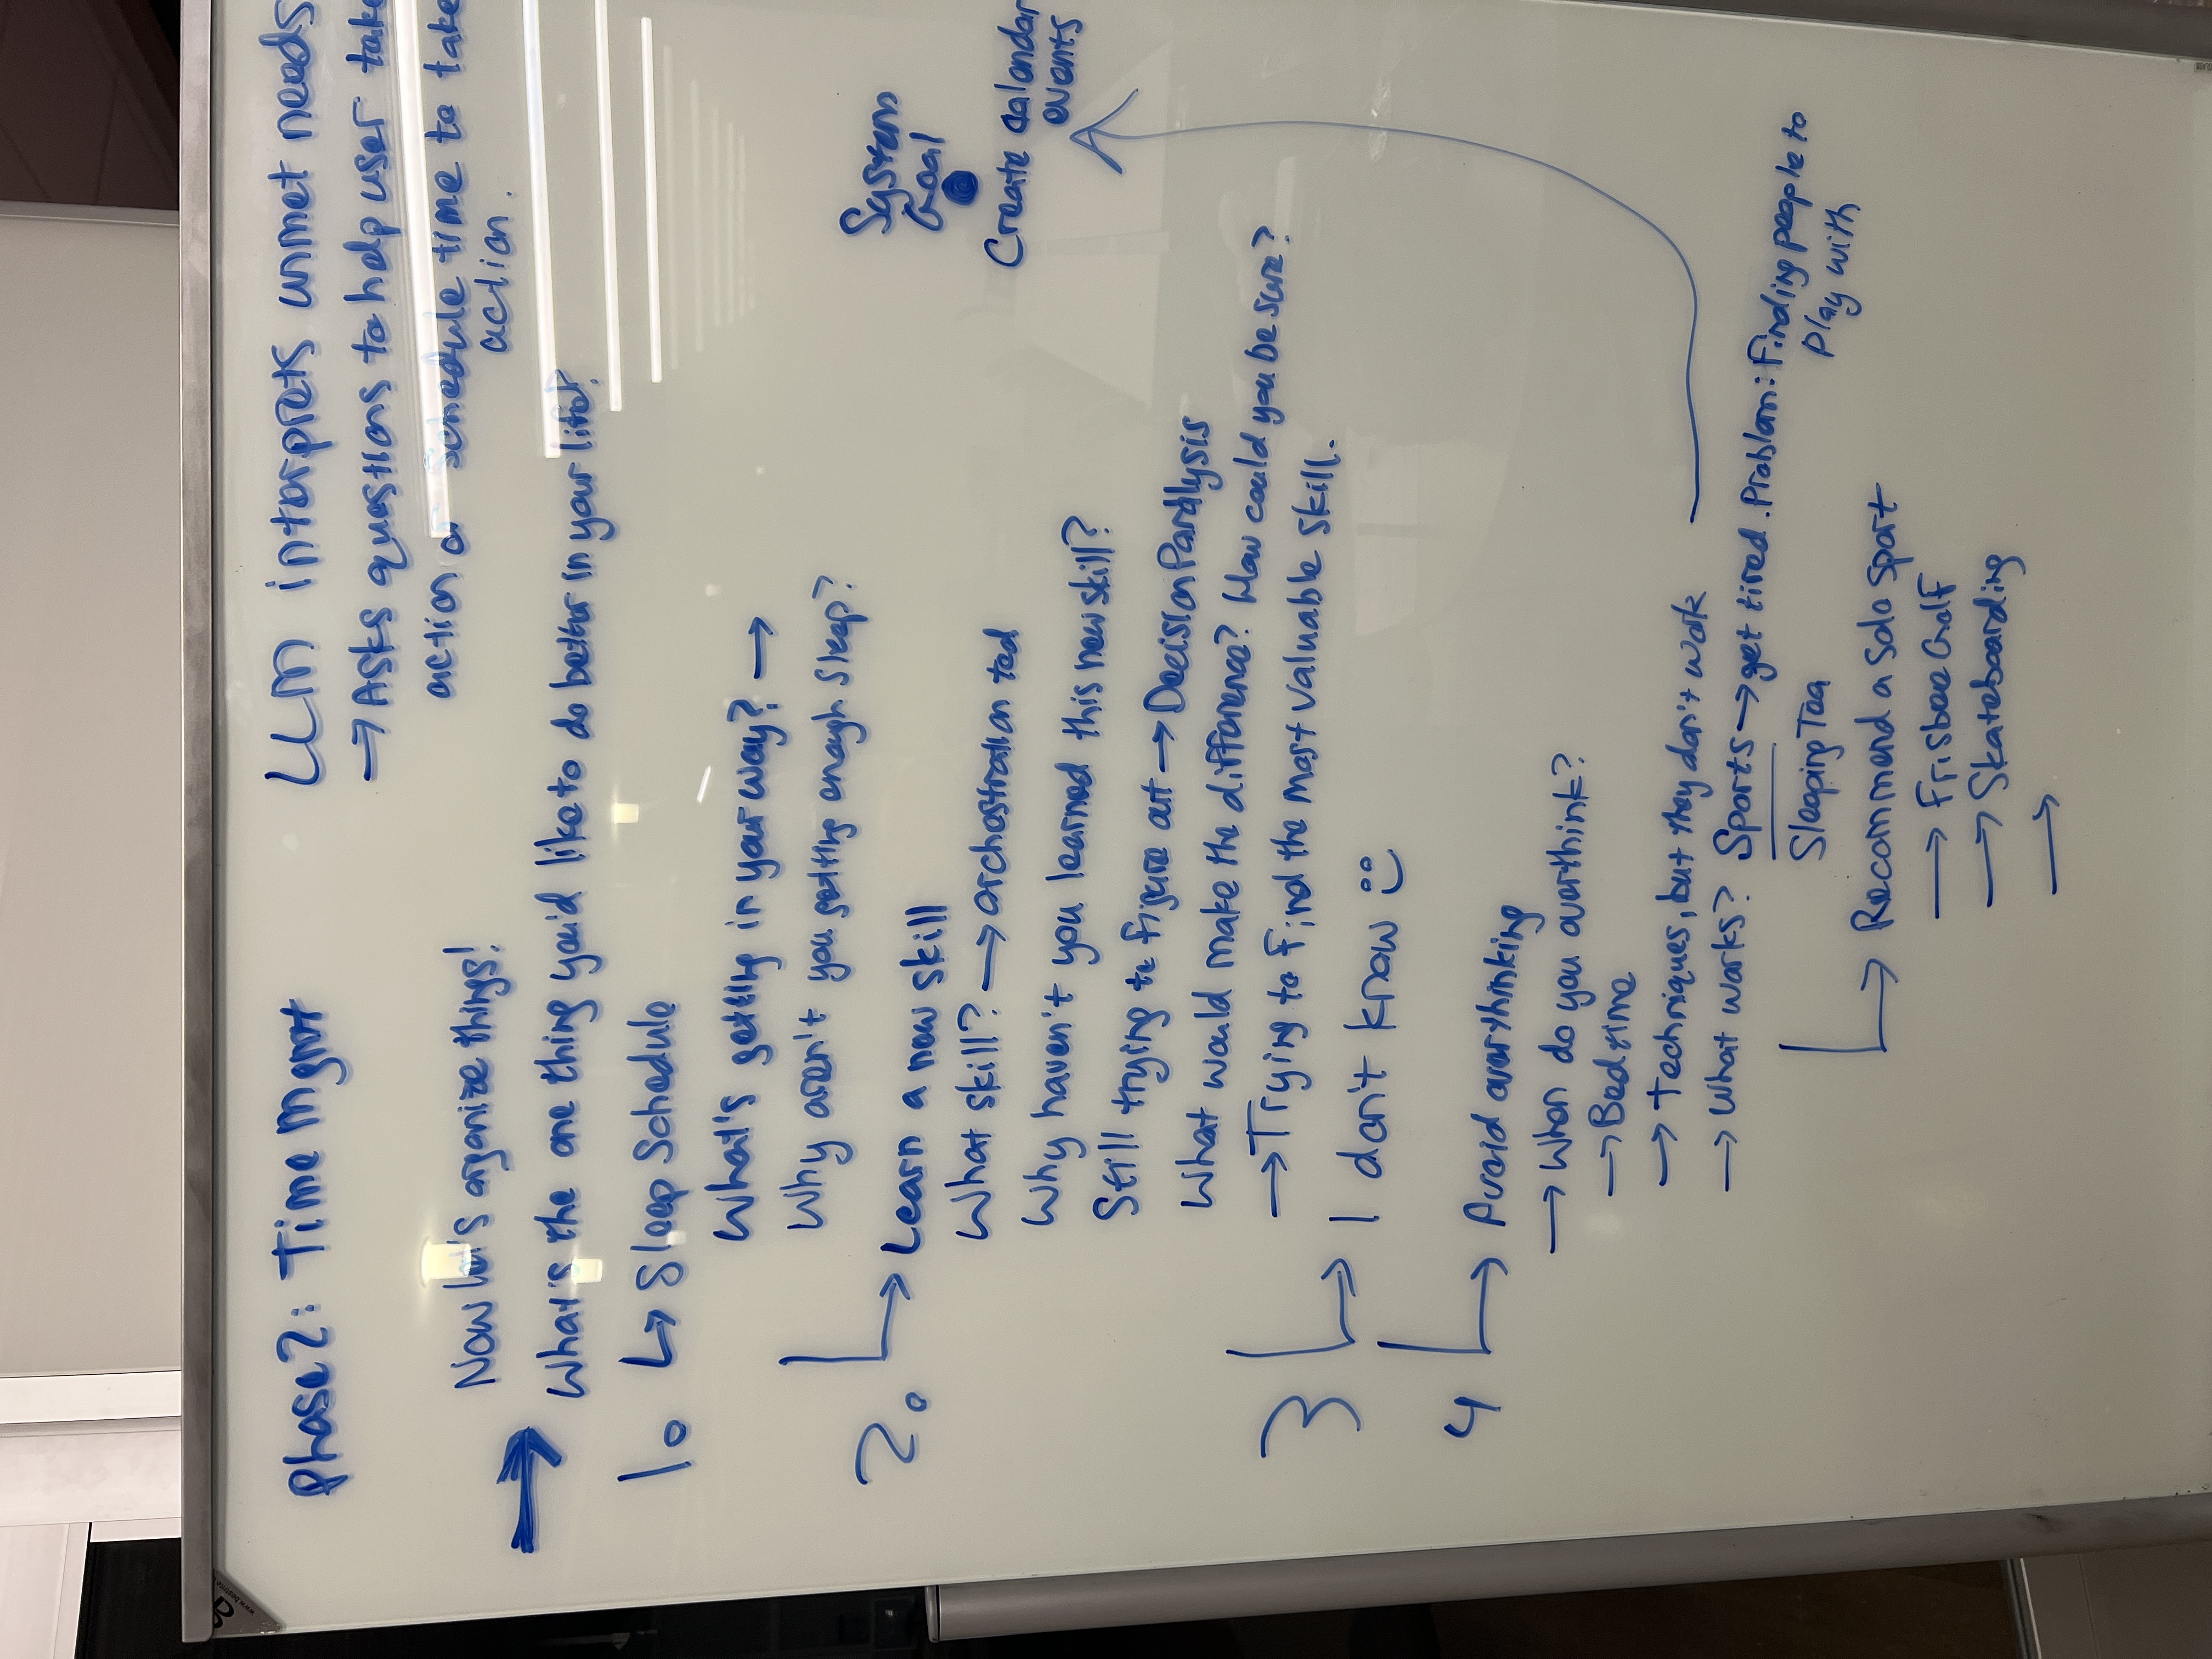 Phase 2: Time mgmt
LLM interprets unmet needs
→ Asks questions to help user take
action or schedule time to take
action.
Now let's organize things!
→ What's the one thing you'd like to do better in your life?
1. ↳ Sleep Schedule
What's getting in your way? →
Why aren't you getting enough sleep?
System
Goal
Create calendar
events
2. ↳ Learn a new skill
What skill? → orchestration ted
Why haven't you learned this new skill?
Still trying to figure out → Decision Paralysis
What would make the difference? How could you be sure?
→ Trying to find the most valuable skill.
3 ↳ I don't know :)
4 ↳ Avoid overthinking
→ When do you overthink?
→ Bedtime
→ Techniques, but they don't work
→ What works? Sports → get tired. Problem: Finding people to
play with
Sleeping Tea
↳ Recommend a solo sport
→ Frisbee Golf
→ Skateboarding
→